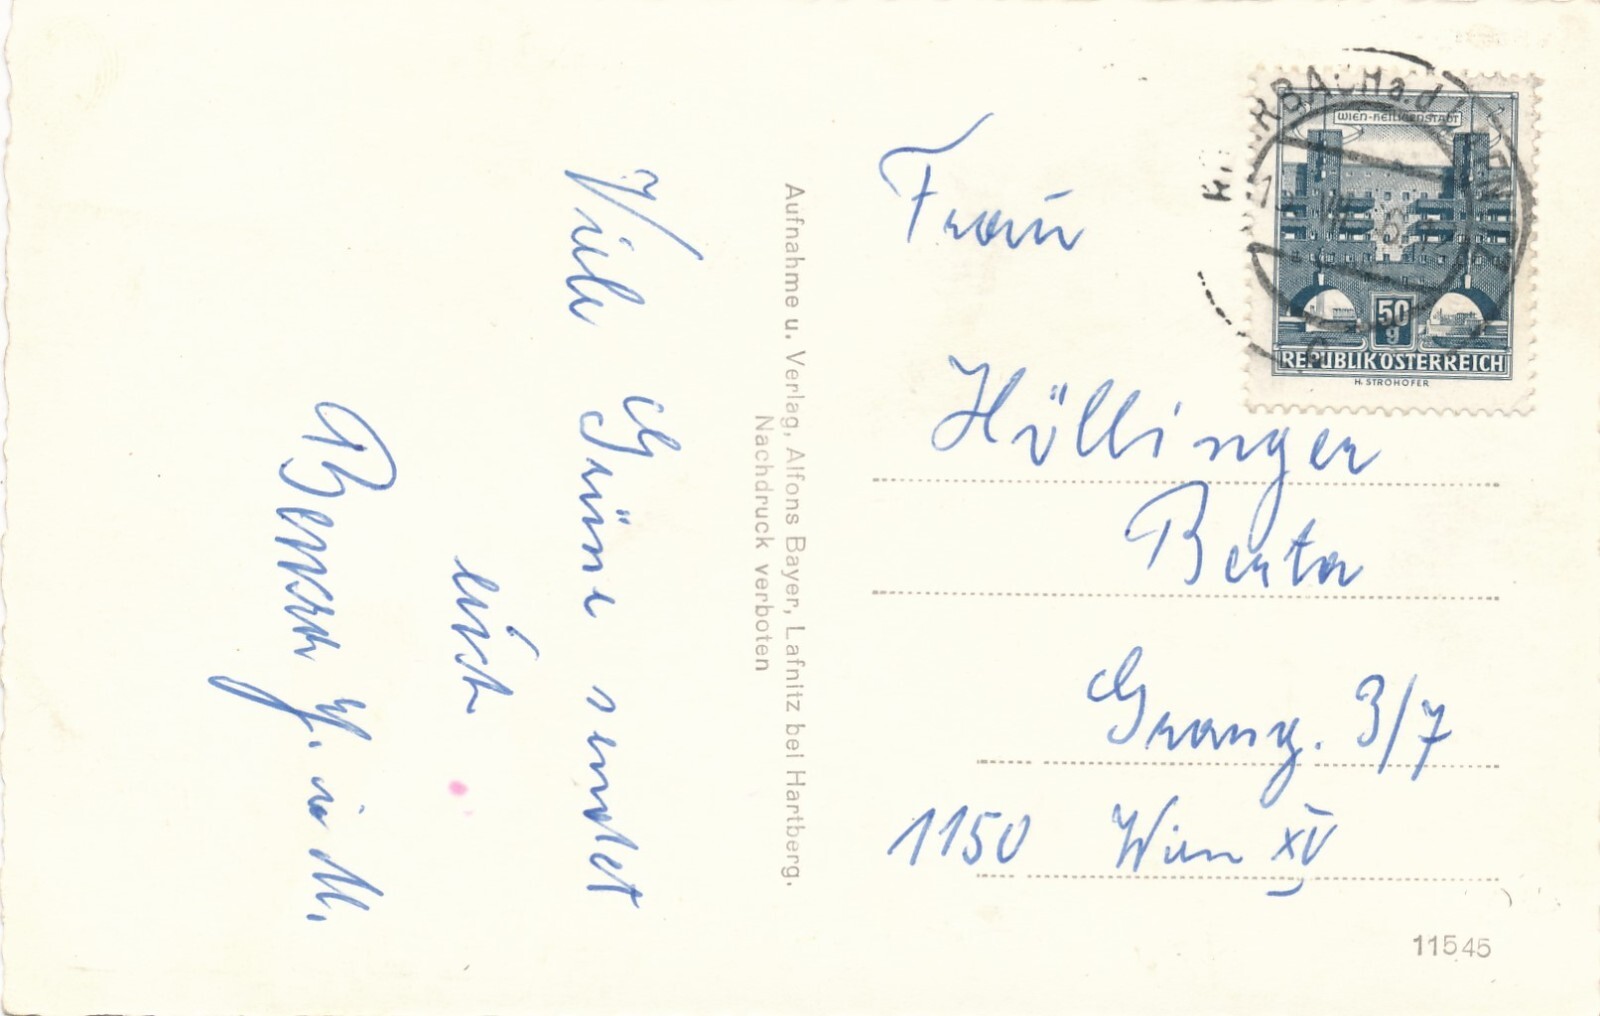 Viele Grüße sendet
euch
Aufnahme u. Verlag, Alfons Bayer, Lafnitz bei Hartberg.
Nachdruck verboten
WIEN-HEILIGENSTADT
50
g
REPUBLIK ÖSTERREICH
H. STROHOFER
Frau
Höllinger
Berta
Grang. 3/7
1150 Wien XV
11545